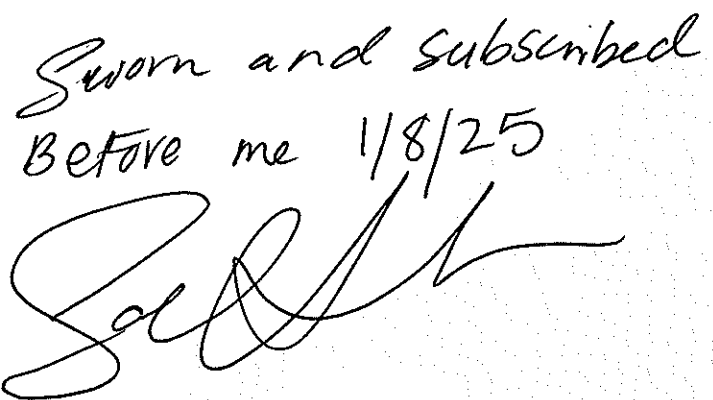 Sworn and subscribed
Before me 1/8/25